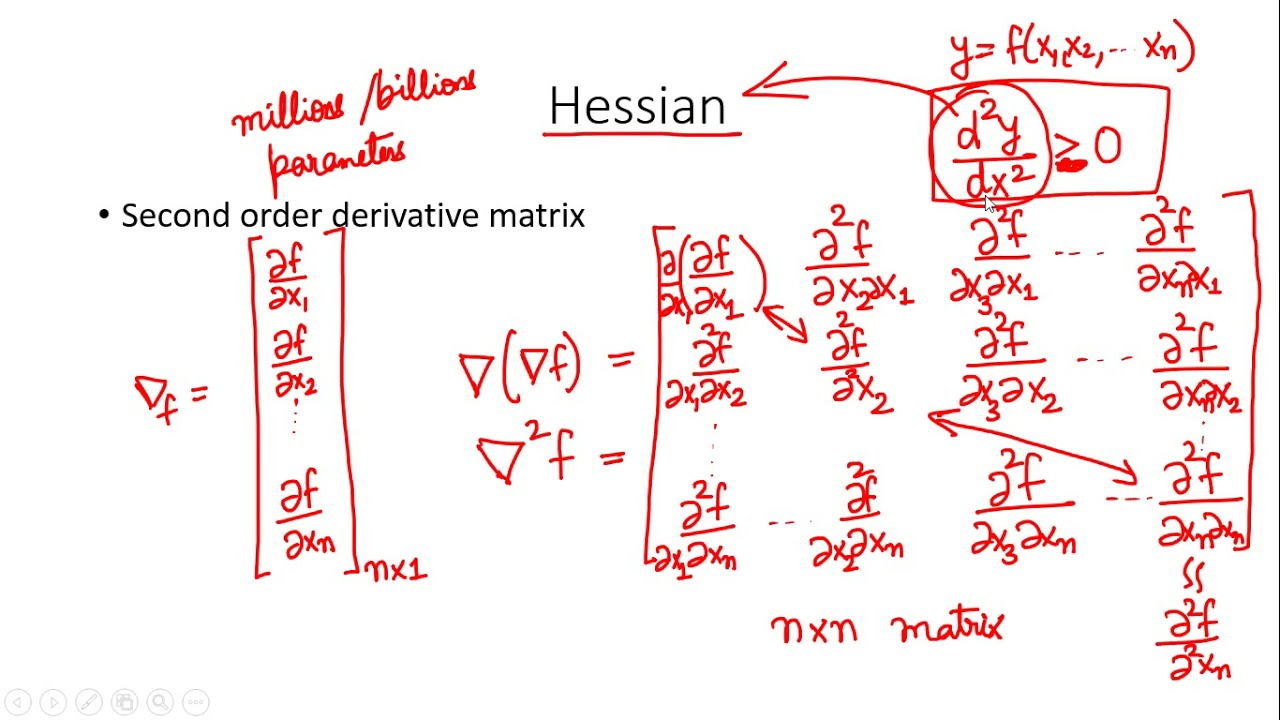 y = f(x₁, x₂, ... xₙ)
millions/billions
parameters
Hessian
d²y/dx² ≥ 0
• Second order derivative matrix
∇f = [∂f/∂x₁
∂f/∂x₂
⋮
∂f/∂xₙ] n×1
∇(∇f) =
∇²f =
∂/∂x₁(∂f/∂x₁) ∂²f/∂x₂∂x₁ ∂²f/∂x₃∂x₁ ---- ∂²f/∂xₙ∂x₁
∂²f/∂x₁∂x₂ ∂²f/∂²x₂ ∂²f/∂x₃∂x₂ ---- ∂²f/∂xₙ∂x₂
⋮ ⋮
∂²f/∂x₁∂xₙ --- ∂²f/∂x₂∂xₙ ∂²f/∂x₃∂xₙ ---- ∂²f/∂xₙ∂xₙ
n×n matrix
∂²f/∂²xₙ